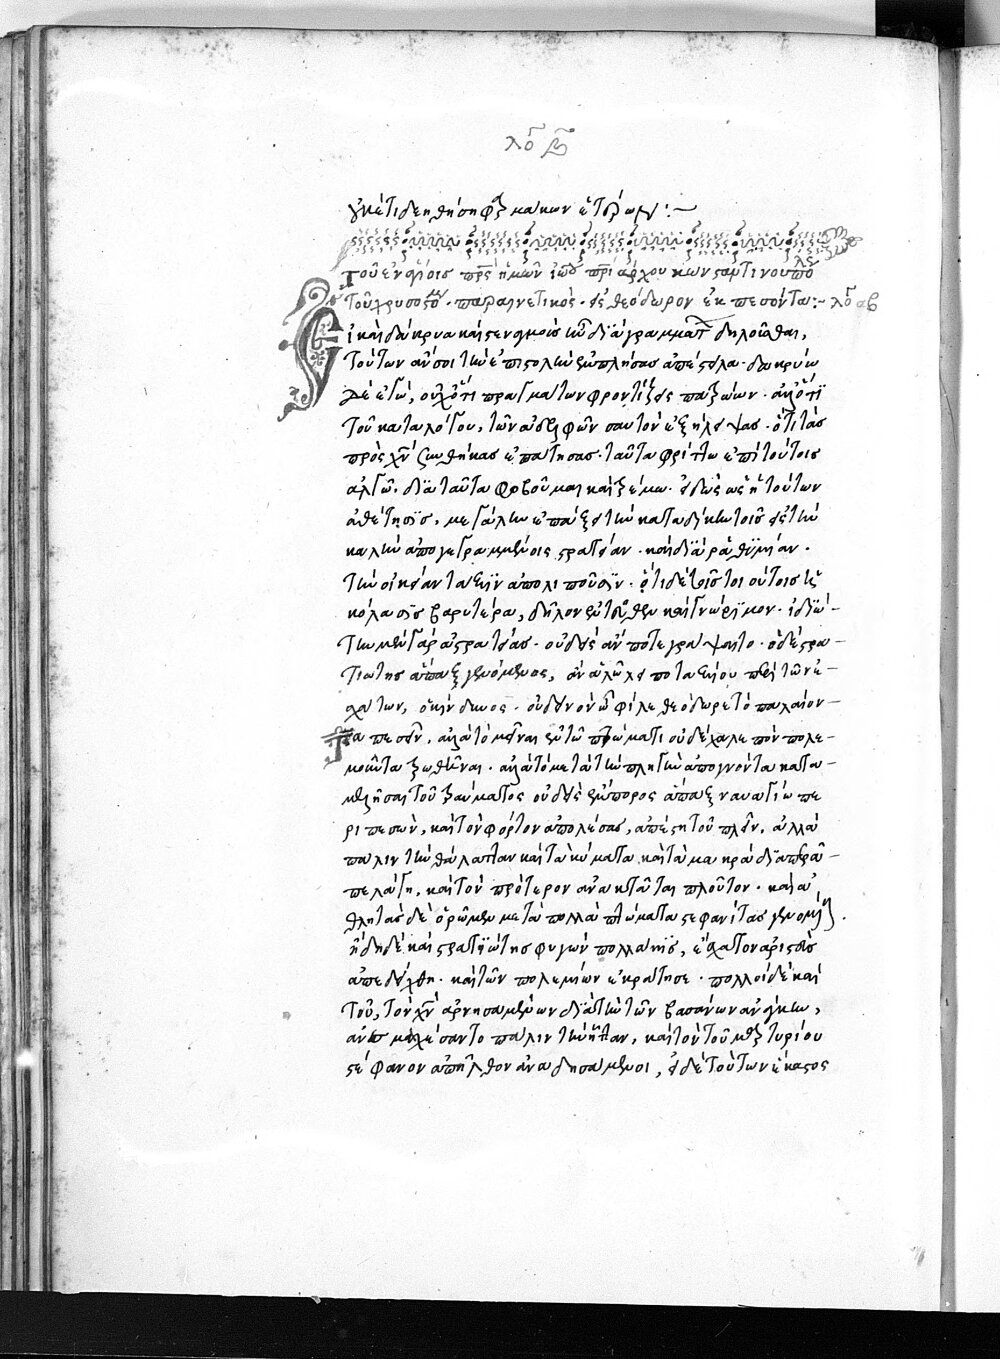 λό β
οὐκέτι δεηθήσῃ φαρμάκων ἑτέρων:~
Τοῦ ἐν ἁγίοις πρς ἡμῶν ἰω πριάρχου κωνσταντινουπόλε
τοῦ χρυσοστόμου· παραινετικὸς· εἰς θεόδωρον ἐκπεσόντα:- λό αβ
Εἰ καὶ δάκρυα καὶ στεναγμοὺς ἦν διὰ γραμμάτ δηλοῦσθαι,
τούτων ἄν σοι τὴν ἐπιστολὴν ἐμπλήσας ἀπέστειλα· δακρύω
δὲ ἐγὼ, οὐχ ὅτι πραγμάτων φροντίζεις πατρῴων· ἀλλ' ὅτι
τοῦ καταλόγου, τῶν ἀδελφῶν σαυτὸν ἐξήλειψας· ὅτι τὰς
πρὸς χν συνθήκας ἐπάτησας· ταῦτα φρίττω ἐπὶ τούτοις
ἀλγῶ· διὰ ταῦτα φοβοῦμαι καὶ τρέμω· εἰδὼς ὡς ἡ τούτων
ἀθέτησις, μεγάλην ἐπάξει τὴν καταδίκην τοῖς εἰς τὴν
καλὴν ἀπογεγραμμένοις στρατείαν· καὶ διὰ ῥαθυμίαν·
τὴν οἰκείαν τάξιν ἀπολιποῦσιν· ὅτι δὲ τοῖς τοιούτοις ἡ
κόλασις βαρυτέρα, δῆλον ἐντεῦθεν καὶ γνώριμον· ἰδιώ-
την μὲν γὰρ ἀστρατείας· οὐδεὶς ἄν ποτε γράψαιτο· ὁ δὲ στρα-
τιώτης ἅπαξ γενόμενος, ἂν ἁλῷ λειποταξίου περὶ τῶν ἐ-
σχάτων, ὁ κίνδυνος· οὐ δεινὸν ὦ φίλε θεόδωρε τὸ παλαίον-
τα πεσεῖν, ἀλλὰ τὸ μεῖναι ἐν τῷ πτώματι οὐδὲ χαλεπὸν πολε-
μοῦντα τρωθῆναι· ἀλλὰ τὸ μετὰ τὴν πληγὴν ἀπογνόντα κατα-
μελῆσαι τοῦ τραύματος οὐδεὶς ἔμπορος ἅπαξ ναυαγίῳ πε
ριπεσὼν, καὶ τὸν φόρτον ἀπολέσας, ἀπέστη τοῦ πλεῖν, ἀλλὰ
πάλιν τὴν θάλατταν καὶ τὰ κύματα καὶ τὰ μακρὰ διαπερᾷ-
πελάγη, καὶ τὸν πρότερον ἀνακτᾶται πλοῦτον· καὶ ἀ
θλητὰς δὲ ὁρῶμεν μετὰ πολλὰ πτώματα στεφανίτας γενομέν.
ἤδη δὲ καὶ στρατιώτης φυγὼν πολλάκις, ἔσχατον ἀριστεὺς
ἀπεδείχθη· καὶ τῶν πολεμίων ἐκράτησε· πολλοὶ δὲ καὶ
τοῦ, τὸν χν ἀρνησαμένων διὰ τὴν τῶν βασάνων ἀνάγκην,
ἀνεμαχέσαντο πάλιν τὴν ἧτταν, καὶ τὸν τοῦ μαρτυρίου
στέφανον ἀπῆλθον ἀναδησάμενοι, εἰ δὲ τούτων ἕκαστος